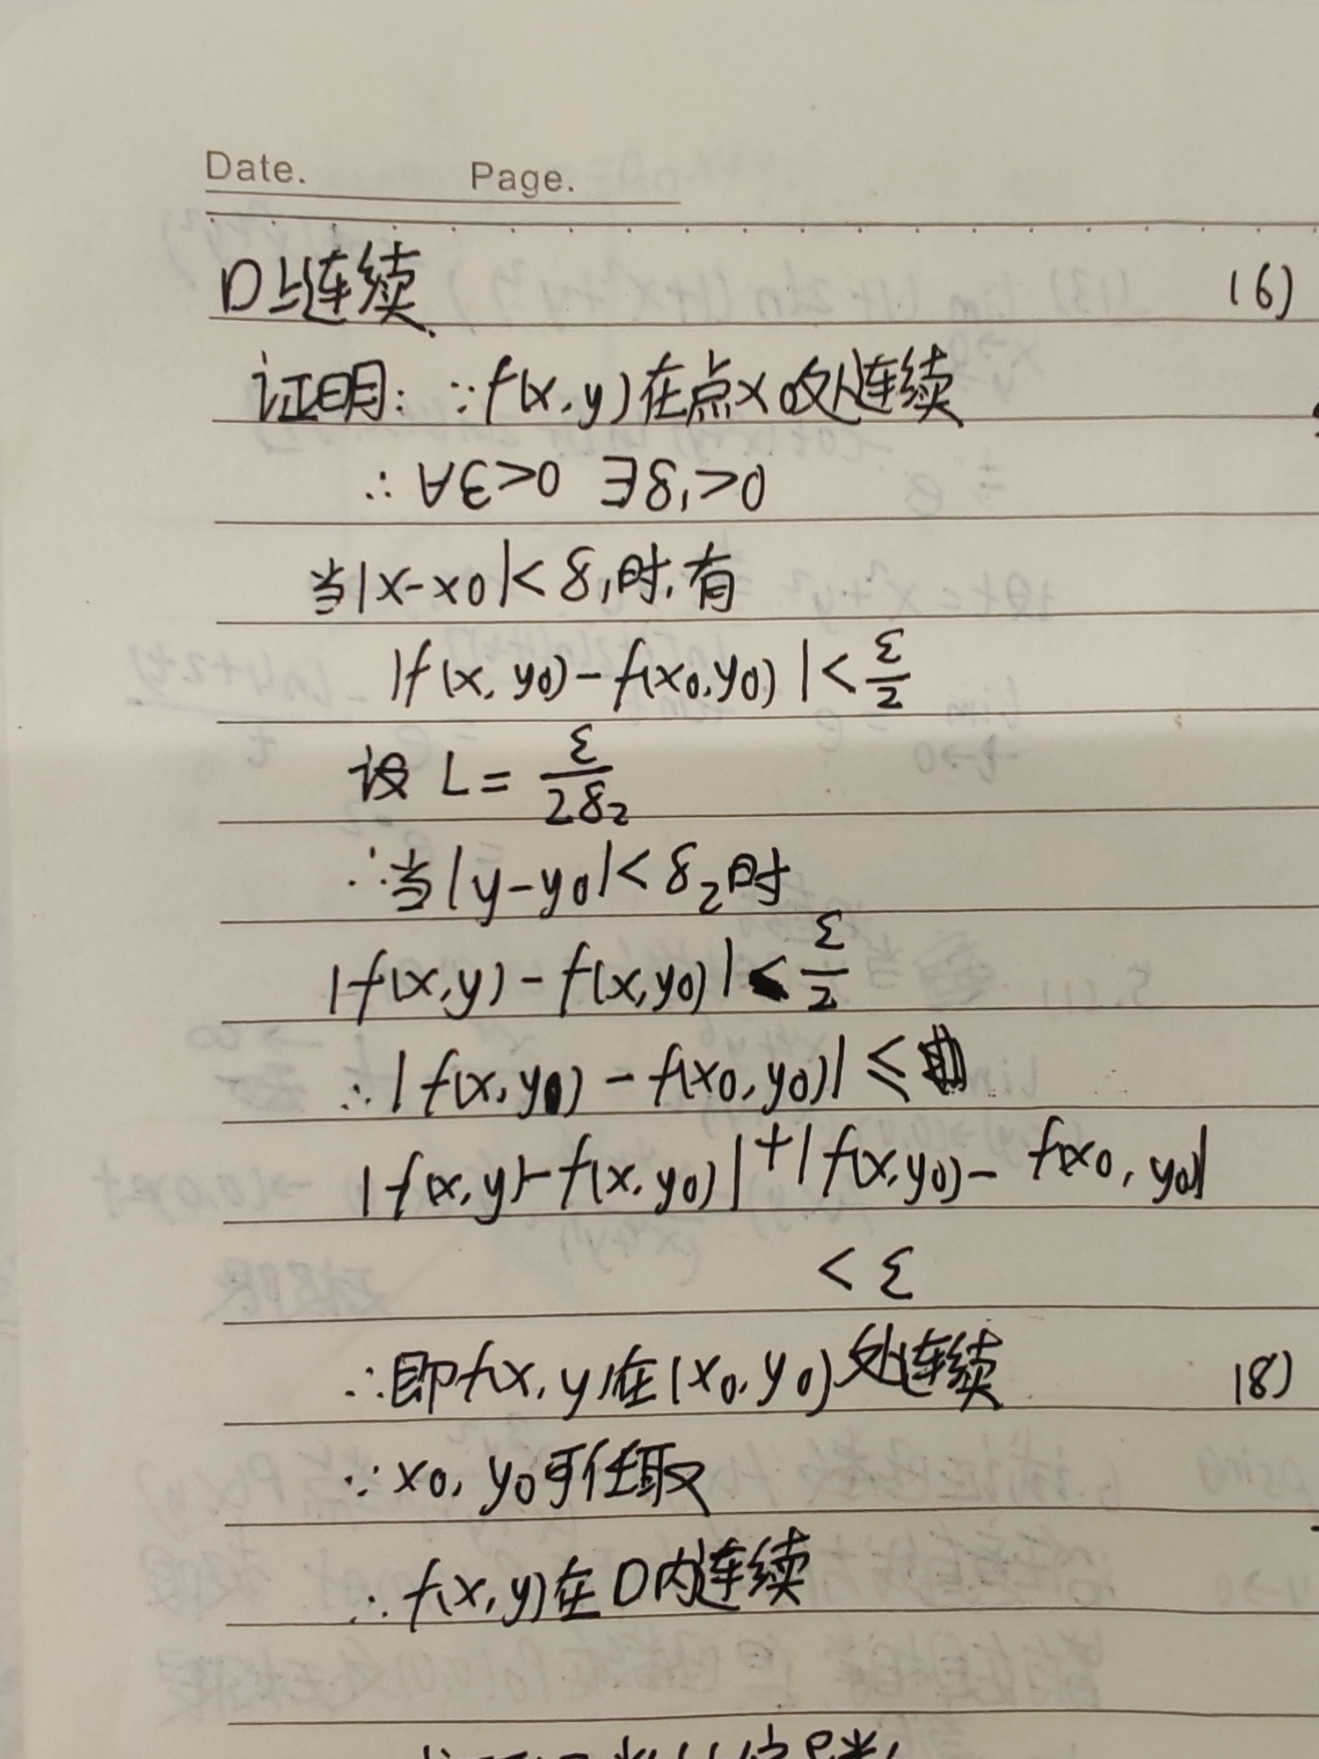 Date. Page.
D上连续.
(6)
证明: ∵f(x,y)在点x0处连续
∴ ∀ε>0 ∃δ1>0
当|x-x0|<δ1时,有
|f(x,y0)-f(x0,y0)|<ε/2
设 L=ε/2δ2
∴当|y-y0|<δ2时
|f(x,y)-f(x,y0)|<ε/2
∴|f(x,y0)-f(x0,y0)|≤
|f(x,y)-f(x,y0)|+|f(x,y0)-f(x0,y0)|
<ε
∴即f(x,y)在(x0,y0)处连续
(8)
∵x0,y0可任取
∴f(x,y)在D内连续